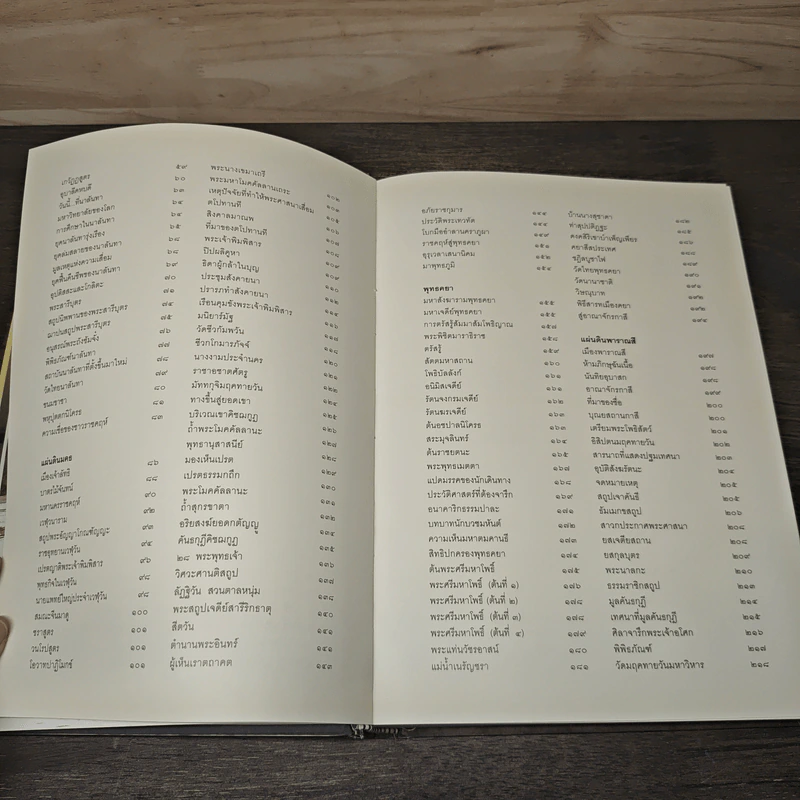 เกวัฏฏสูตร ๕๙
อุบาลีคหบดี ๖๐
วันนี้...ที่นาลันทา ๖๓
มหาวิทยาลัยของโลก ๖๔
การศึกษาในนาลันทา ๖๔
ยุคนาลันทารุ่งเรือง ๖๘
ยุคล่มสลายของนาลันทา ๖๘
มูลเหตุแห่งความเสื่อม ๖๙
ยุคฟื้นคืนชีพของนาลันทา ๗๐
อุปติสสะและโกลิตะ ๗๑
พระสารีบุตร ๗๔
สถูปนิพพานของพระสารีบุตร ๗๕
ฌาปนสถูปพระสารีบุตร ๗๖
อนุสรณ์พระถังซัมจั๋ง ๗๗
พิพิธภัณฑ์นาลันทา ๗๘
สถาบันนาลันทาที่ตั้งขึ้นมาใหม่ ๗๙
วัดไทยนาลันทา ๘๐
ขนมขาชา ๘๑
พหุปุตตกนิโครธ ๘๓
ความเชื่อของชาวราชคฤห์
แผ่นดินมคธ
เมืองเจ้าลัทธิ ๘๖
บาตรไม้จันทน์ ๘๘
มหานครราชคฤห์ ๙๐
เวฬุวนาราม ๙๒
สถูปพระอัญญาโกณฑัญญะ ๙๓
ราชอุทยานเวฬุวัน ๙๔
เปรตญาติพระเจ้าพิมพิสาร ๙๖
พุทธกิจในเวฬุวัน ๙๘
นายแพทย์ใหญ่ประจำเวฬุวัน ๙๘
สมณะจีนมาสู่ ๑๐๐
ชราสูตร ๑๐๑
วนโรปสูตร ๑๐๑
โอวาทปาฏิโมกข์ ๑๐๑
พระนางเขมาเถรี
พระมหาโมคคัลลานเถระ ๑๐๒
เหตุปัจจัยที่ทำให้พระศาสนาเสื่อม
ตโปทานที
สิงคาลมาณพ
ที่มาของตโปทานที ๑๐๖
พระเจ้าพิมพิสาร ๑๐๘
ปิปผลิคูหา
ธิดาผู้กล้าในบุญ
ประชุมสังคายนา
ปรารภทำสังคายนา ๑๑๐
เรือนคุมขังพระเจ้าพิมพิสาร ๑๑๒
มนิยาร์มัฐ ๑๑๔
วัดชีวกัมพวัน
ชีวกโกมารภัจจ์ ๑๑๘
นางงามประจำนคร ๑๒๐
ราชาอชาตศัตรู ๑๒๑
มัททกุจฉิมฤคทายวัน ๑๒๒
ทางขึ้นสู่ยอดเขา ๑๒๔
บริเวณเขาคิชฌกูฏ ๑๒๕
ถ้ำพระโมคคัลลานะ ๑๒๖
พุทธานุสาสนีย์ ๑๒๗
มองเห็นเปรต ๑๒๘
เปรตธรรมกถึก ๑๒๙
พระโมคคัลลานะ ๑๓๐
ถ้ำสุกรขาตา ๑๓๑
อริยสงฆ์ยอดกตัญญู ๑๓๑
คันธกุฎีคิชฌกูฏ ๑๓๔
๒๘ พระพุทธเจ้า ๑๓๕
วิศวะศานติสถูป ๑๓๗
ลัฏฐิวัน สวนตาลหนุ่ม ๑๓๘
พระสถูปเจดีย์สารีริกธาตุ ๑๔๐
สีตวัน ๑๔๑
ตำนานพระอินทร์ ๑๔๑
ผู้เห็นเราตถาคต ๑๔๓
อภัยราชกุมาร ๑๔๔
ประวัติพระเทวทัต ๑๔๔
โบกมืออำลานคราภูผา ๑๔๙
ราชคฤห์สู่พุทธคยา ๑๕๑
อุรุเวลาเสนานิคม ๑๕๒
มาพุทธภูมิ ๑๕๔
พุทธคยา
มหาสังฆารามพุทธคยา ๑๕๕
มหาเจดีย์พุทธคยา ๑๕๕
การตรัสรู้สัมมาสัมโพธิญาณ ๑๕๗
พระพิชิตมาราธิราช ๑๕๘
ตรัสรู้ ๑๕๙
สัตตมหาสถาน ๑๖๐
โพธิบัลลังก์ ๑๖๑
อนิมิสเจดีย์ ๑๖๑
รัตนจงกรมเจดีย์ ๑๖๒
รัตนฆรเจดีย์ ๑๖๓
ต้นอชปาลนิโครธ ๑๖๓
สระมุจลินทร์ ๑๖๔
ต้นราชยตนะ ๑๖๕
พระพุทธเมตตา ๑๖๗
แปดมรรคของนักเดินทาง ๑๖๘
ประวัติศาสตร์ที่ต้องจารึก ๑๖๙
อนาคาริกธรรมปาละ ๑๗๑
บทบาทนักบวชมหันต์ ๑๗๒
ความเห็นมหาตมคานธี ๑๗๓
สิทธิปกครองพุทธคยา ๑๗๔
ต้นพระศรีมหาโพธิ์ ๑๗๕
พระศรีมหาโพธิ์ (ต้นที่ ๑) ๑๗๖
พระศรีมหาโพธิ์ (ต้นที่ ๒) ๑๗๘
พระศรีมหาโพธิ์ (ต้นที่ ๓) ๑๗๘
พระศรีมหาโพธิ์ (ต้นที่ ๔) ๑๗๙
พระแท่นวัชรอาสน์ ๑๘๐
แม่น้ำเนรัญชรา ๑๘๑
บ้านนางสุชาดา ๑๘๒
ท่าสุปปติฏฐะ ๑๘๕
ดงคสิริเขาบำเพ็ญเพียร ๑๘๖
คยาสีสประเทศ ๑๘๘
ชฎิลบูชาไฟ ๑๘๙
วัดไทยพุทธคยา ๑๙๐
วัดนานาชาติ ๑๙๑
วิษณุบาท ๑๙๒
พิธีสารทเมืองคยา ๑๙๒
สู่อาณาจักรกาสี ๑๙๔
แผ่นดินพาราณสี
เมืองพาราณสี ๑๙๗
ห้ามภิกษุฉันเนื้อ ๑๙๘
นันทิยอุบาสก ๑๙๘
อาณาจักรกาสี ๑๙๙
ที่มาของชื่อ ๒๐๐
บุณยสถานกาสี ๒๐๐
เตรียมพระโพธิสัตว์ ๒๐๑
อิสิปตนมฤคทายวัน ๒๐๒
สารนาถที่แสดงปฐมเทศนา ๒๐๓
อุบัติสังฆรัตนะ ๒๐๔
จดหมายเหตุ ๒๐๕
สถูปเจาคันธี ๒๐๕
ธัมเมกขสถูป ๒๐๖
สาวกประกาศพระศาสนา ๒๐๘
ยสเจดียสถาน ๒๐๘
ยสกุลบุตร ๒๐๙
พระนาลกะ ๒๑๐
ธรรมราชิกสถูป ๒๑๓
มูลคันธกุฎี ๒๑๔
เทศนาที่มูลคันธกุฎี ๒๑๕
ศิลาจารึกพระเจ้าอโศก ๒๑๖
พิพิธภัณฑ์ ๒๑๗
วัดมฤคทายวันมหาวิหาร ๒๑๘